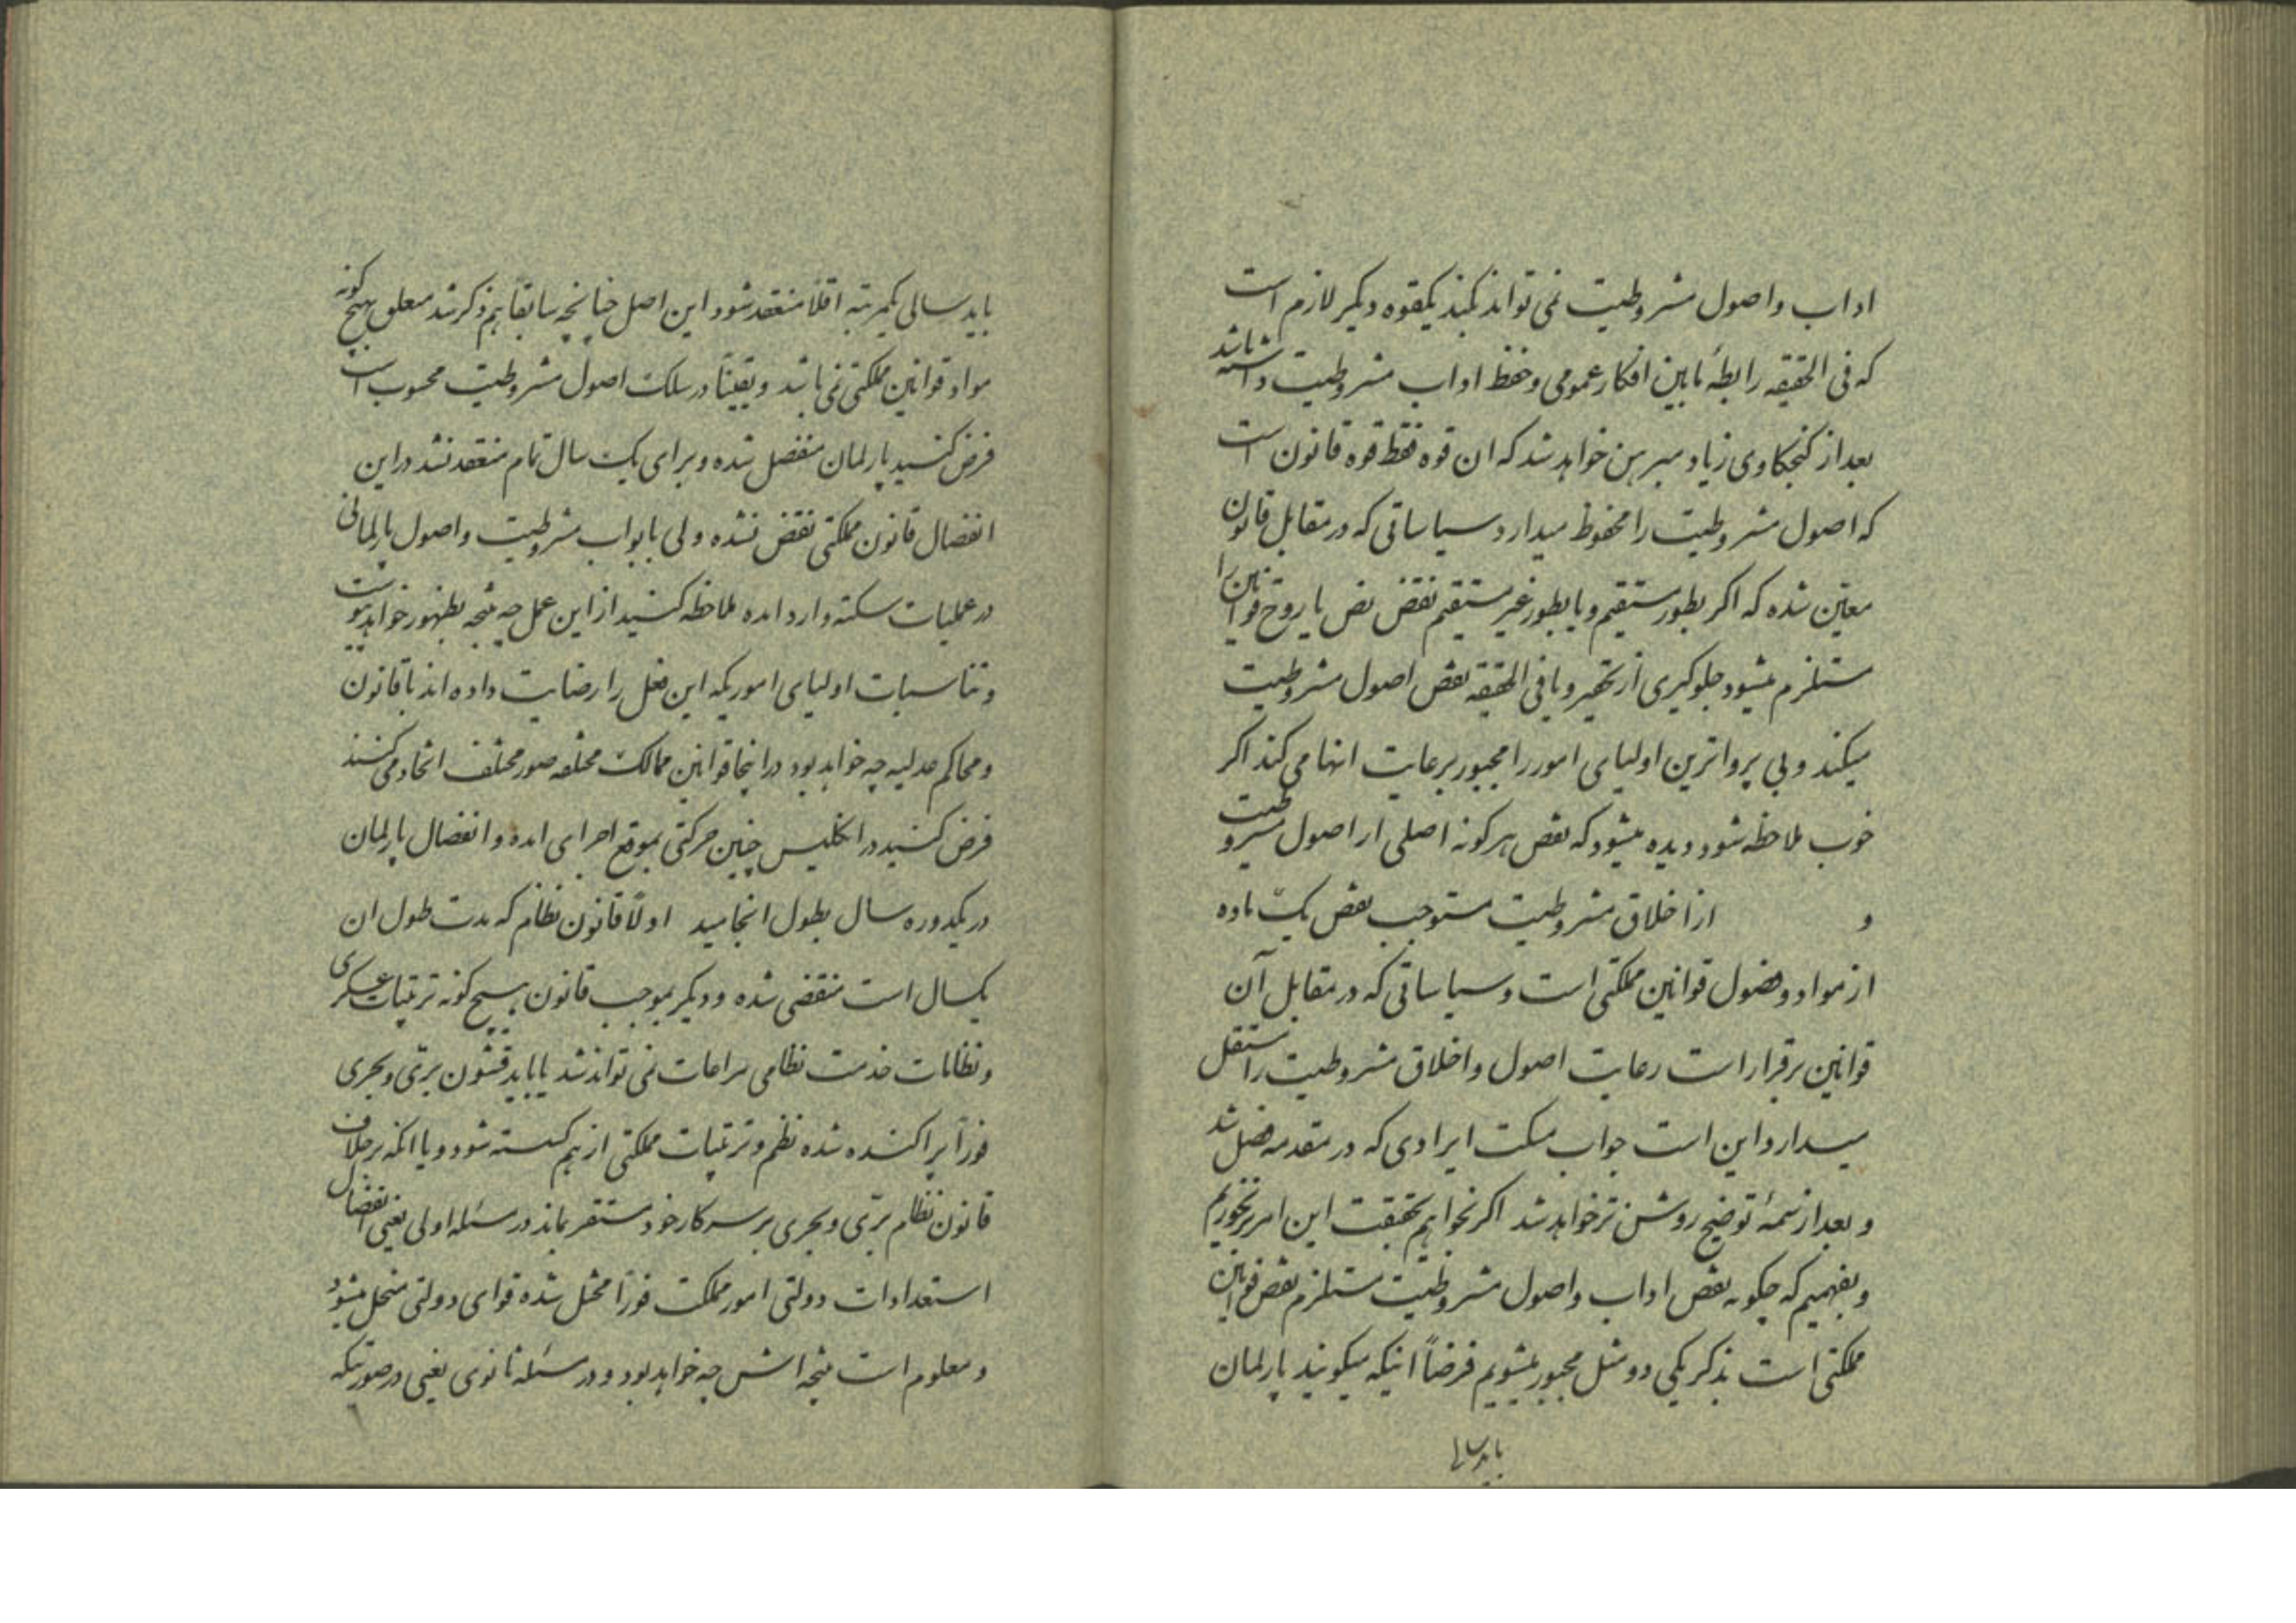 اداب واصول مشروطیت نمی تواند بکند یکقوه دیگر لازم است
که فی الحقیقه رابطهٔ مابین افکار عمومی وحفظ اداب مشروطیت داشته باشد
بعد از کنجکاوی زیاد مبرهن خواهد شد که ان قوه فقط قوه قانون است
که اصول مشروطیت را محفوظ میدارد و سیاساتی که در مقابل قانون
معیّن شده که اگر بطور مستقیم و یا بطور غیر مستقیم نقض نص یا روح قوانین را
مستلزم میشود جلوگیری از تغییر و یا فی الحقیقه نقض اصول مشروطیت
میکند و بی پرواترین اولیای امور را مجبور برعایت انها می کند اگر
خوب ملاحظه شود دیده میشود که نقض هر گونه اصلی از اصول مشروطیت
و از اخلاق مشروطیت مستوجب نقض یک ماده
از مواد و فصول قوانین مملکتی است و سیاساتی که در مقابل آن
قوانین برقرار است رعایت اصول و اخلاق مشروطیت را مستقل
میدارد و این است جواب مسکت ایرادی که در مقدمه فصل شد
و بعد از تتمهٔ توضیح روشن تر خواهد شد اگر بخواهیم بحقیقت این امر برخوریم
و بفهمیم که چگونه نقض اداب و اصول مشروطیت مستلزم نقض قوانین
مملکتی است بذکر یکی دو مثل مجبور میشویم فرضاً اینکه میگویند پارلمان
باید سالی
باید سالی یکمرتبه اقلا منعقد شود این اصل چنانچه سابقا هم ذکر شد معلق بهیچ گونه
مواد قوانین مملکتی نمی باشد و یقیناً در سلک اصول مشروطیت محسوب است
فرض کنید پارلمان منفصل شده و برای یک سال تمام منعقد نشد در این
انفصال قانون مملکتی نقض نشده ولی بابواب مشروطیت و اصول پارلمانی
در عملیات سکته وارد امده ملاحظه کنید از این عمل چه نتیجه بظهور خواهد پیوست
و تناسبات اولیای اموریکه این فعل را رضایت داده اند با قانون
و محاکم عدلیه چه خواهد بود در اینجا قوانین ممالک مختلفه صور مختلف اتخاذ می کنند
فرض کنید در انگلیس چنین حرکتی بموقع اجرای امده و انفصال پارلمان
در یکدوره سال بطول انجامید اولاً قانون نظام که مدت طول ان
یکسال است منقضی شده و دیگر بموجب قانون هیچ گونه ترتیبات عسکری
و نظامات خدمت نظامی مراعات نمی تواند شد یا باید قشون برّی و بحری
فوراً پراکنده شده نظم و ترتیبات مملکتی از هم گسسته شود و یا انکه برخلاف
قانون نظام برّی و بحری بر سر کار خود مستقر بماند در مسئله اولی یعنی انفصال
استعدادات دولتی امور مملکت فوراً مختل شده قوای دولتی منحل میشود
و معلوم است نتیجه اش چه خواهد بود و در مسئله ثانوی یعنی در صورتیکه